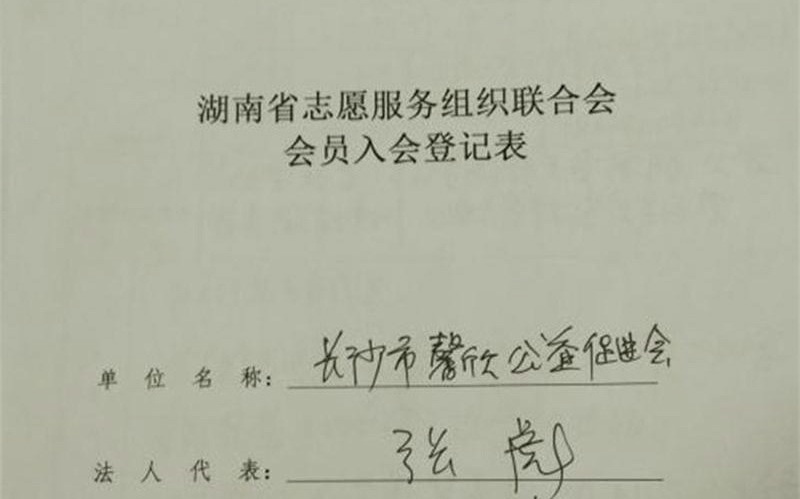 湖南省志愿服务组织联合会
会员入会登记表
单位名称：长沙市馨欣公益促进会
法人代表：张彪